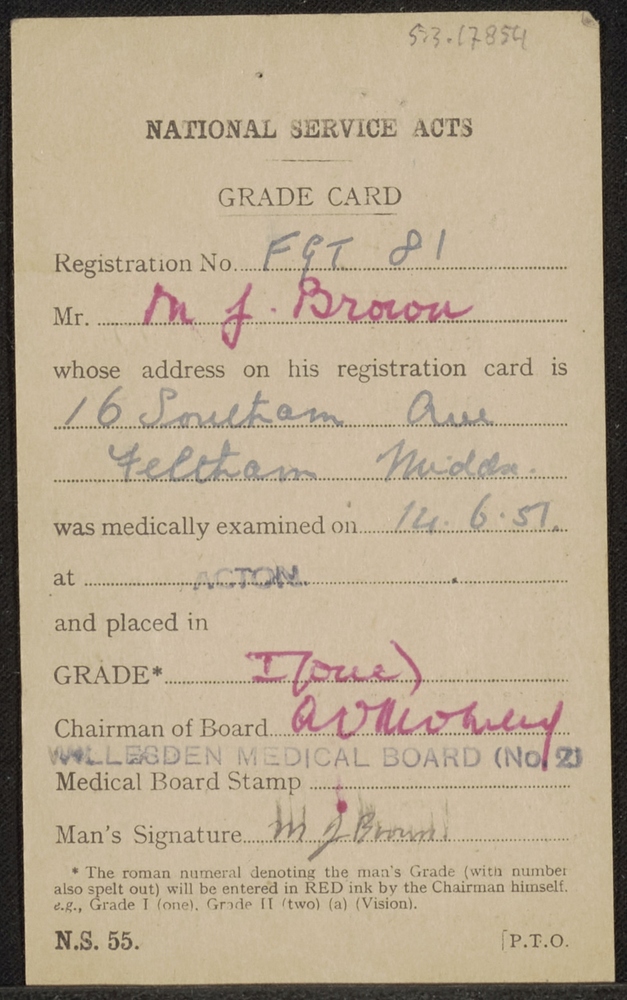 53.17854
NATIONAL SERVICE ACTS
GRADE CARD
Registration No. FGT 81
Mr. M J. Brown
whose address on his registration card is
16 Southam Ave
Feltham Middx.
was medically examined on 14.6.51.
at ACTON.
and placed in
GRADE* I (one)
Chairman of Board
WILLESDEN MEDICAL BOARD (No. 2)
Medical Board Stamp
Man's Signature M J Brown
* The roman numeral denoting the man's Grade (with number
also spelt out) will be entered in RED ink by the Chairman himself.
e.g., Grade I (one), Grade II (two) (a) (Vision).
N.S. 55. [P.T.O.